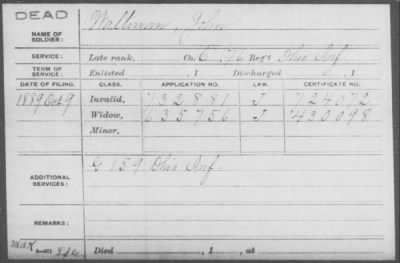 DEAD
NAME OF SOLDIER: Wallman, John
SERVICE: Late rank, Co. C, 76 Reg't Ohio Inf
TERM OF SERVICE: Enlisted , 1 Discharged , 1
DATE OF FILING. CLASS. APPLICATION NO. LAW. CERTIFICATE NO.
1889 Oct 9 Invalid, 732881 J 724072
Widow, 635756 J 430098
Minor,
G 159 Ohio Inf.
ADDITIONAL SERVICES:
REMARKS:
Died , 1 , at